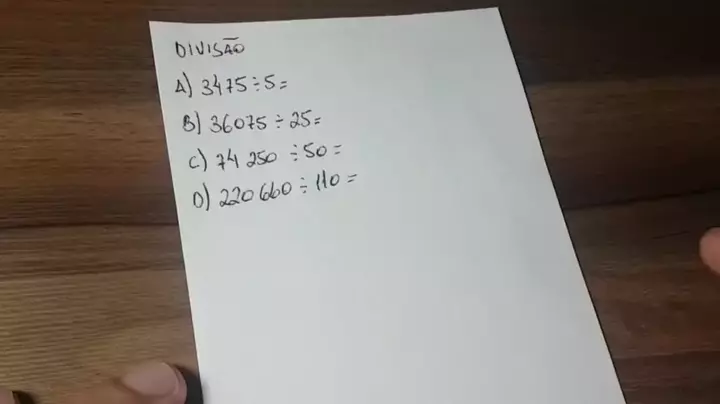 DIVISÃO
A) 3475 ÷ 5 =
B) 36075 ÷ 25 =
C) 74 250 ÷ 50 =
D) 220 660 ÷ 110 =